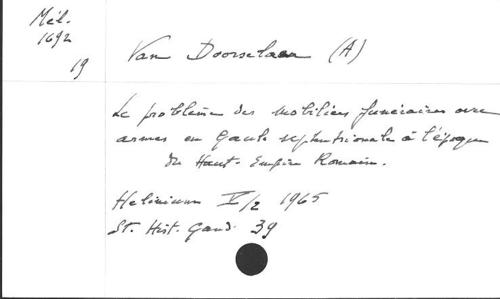 Mél.
1692
19
Van Doorselaer (A)
Le problème des mobiliers funéraires avec
armes en Gaule septentrionale à l'époque
du Haut-Empire Romain.
Helinium V/2 1965
St. Hist. Gand. 39